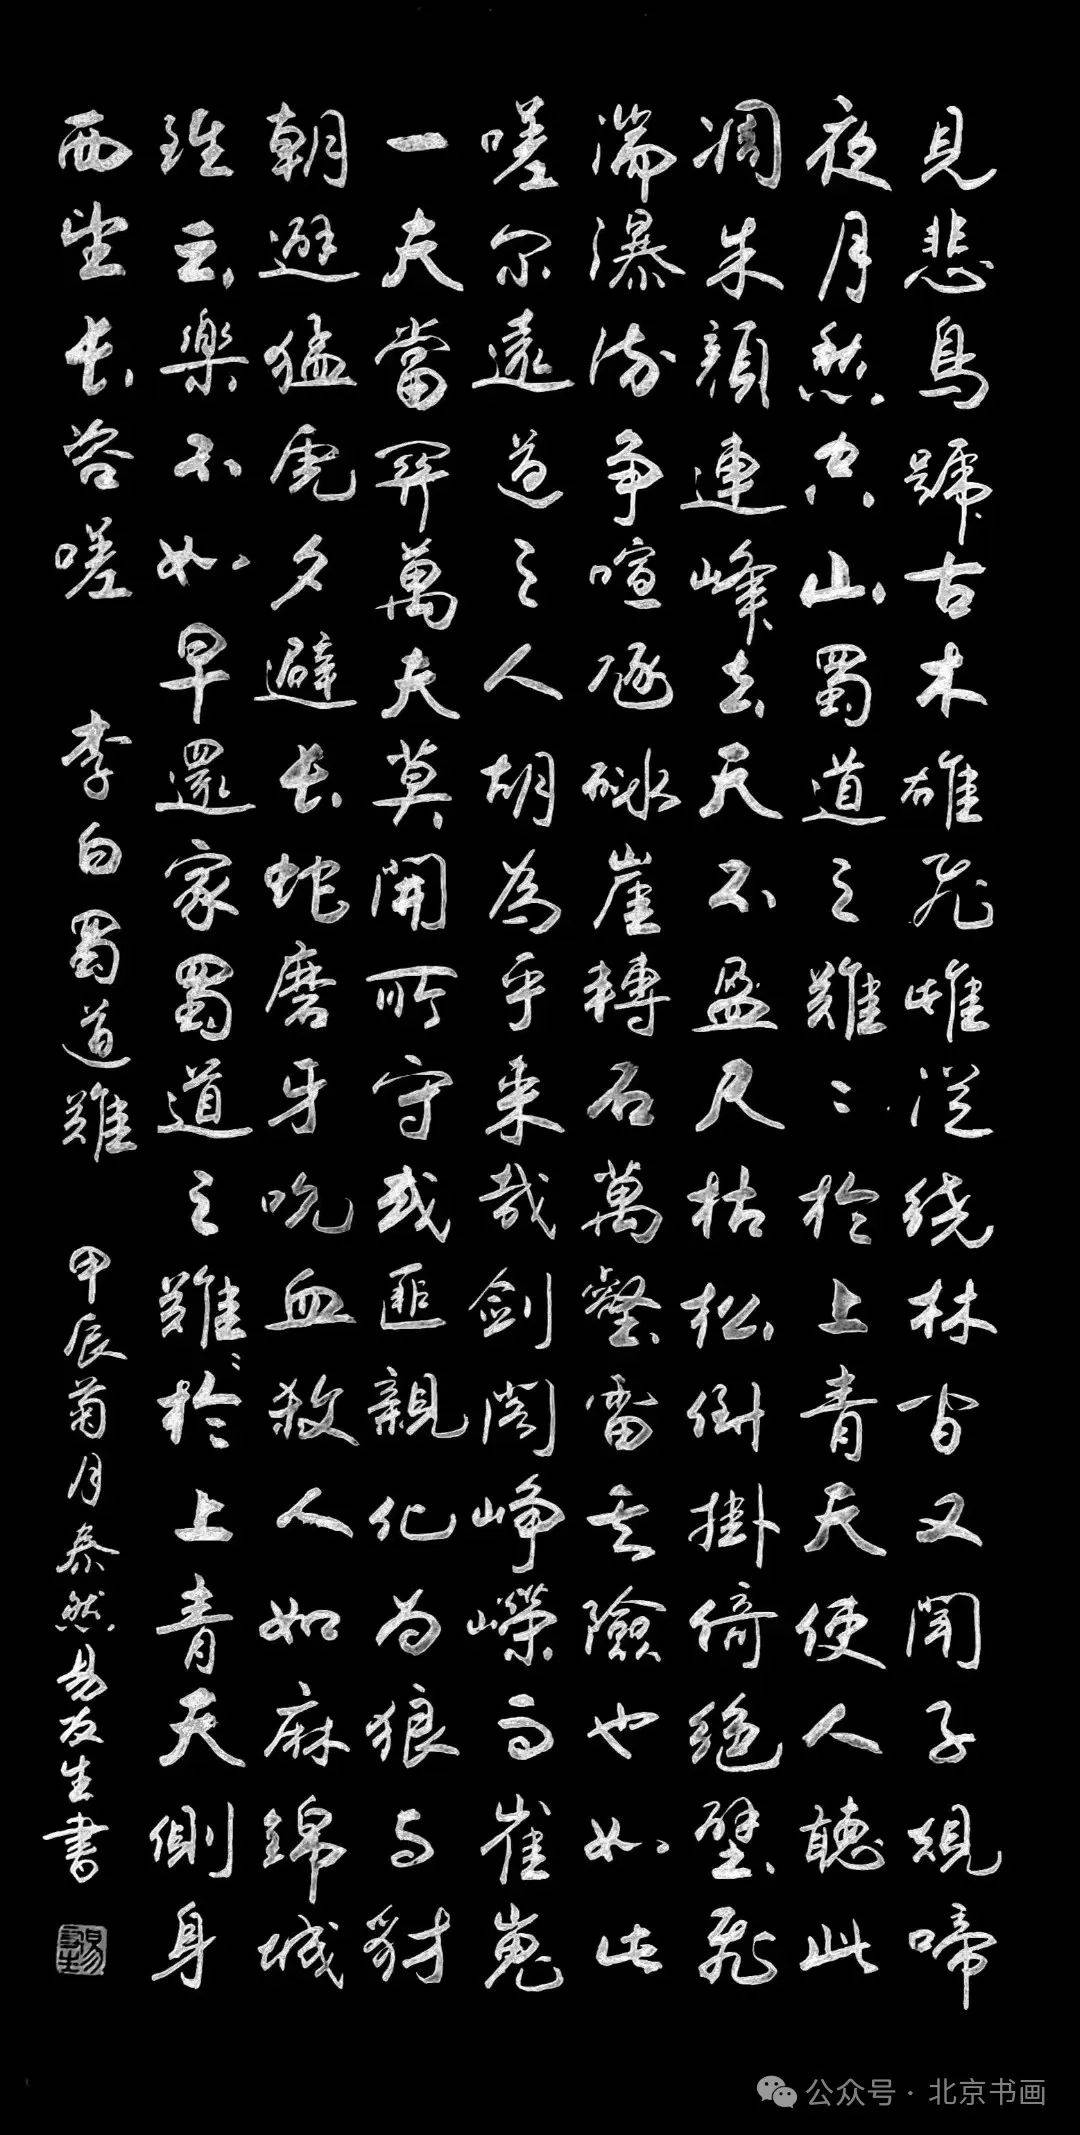 見悲鳥號古木雄飛雌從繞林間又聞子規啼
夜月愁空山蜀道之難〻於上青天使人聽此
凋朱顏連峰去天不盈尺枯松倒掛倚絕壁飛
湍瀑流争喧豗砯崖轉石萬壑雷其險也如此
嗟尔遠道之人胡為乎来哉劍閣崢嶸而崔嵬
一夫當關萬夫莫開所守或匪親化为狼与豺
朝避猛虎夕避长蛇磨牙吮血殺人如麻錦城
雖云樂不如早還家蜀道之難〻於上青天側身
西望长咨嗟 李白蜀道難 甲辰菊月泰然易友生書
公众号·北京书画